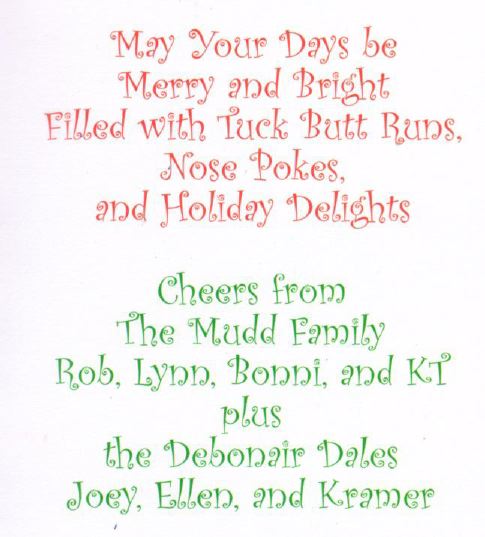 May Your Days be
Merry and Bright
Filled with Tuck Butt Runs,
Nose Pokes,
and Holiday Delights
Cheers from
The Mudd Family
Rob, Lynn, Bonni, and KT
plus
the Debonair Dales
Joey, Ellen, and Kramer